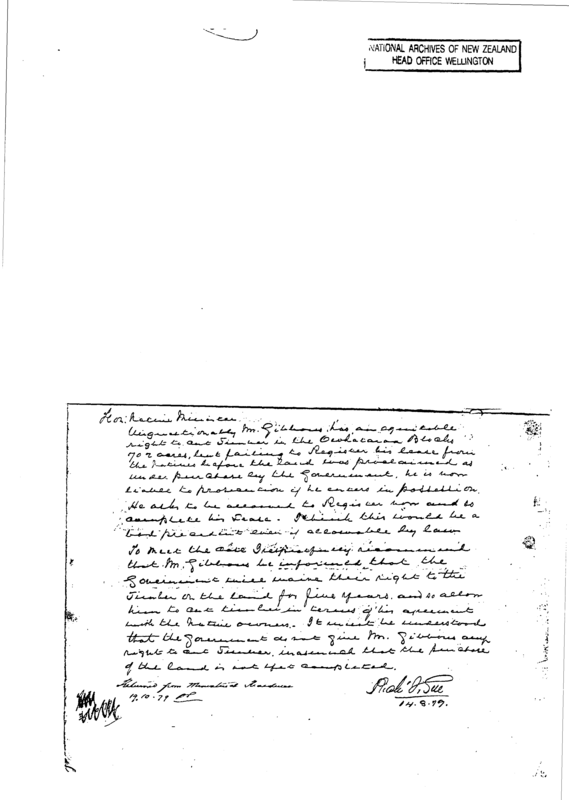 NATIONAL ARCHIVES OF NEW ZEALAND
HEAD OFFICE WELLINGTON
Hon. Native Minister
Unquestionably Mr. Gibbons has an equitable
right to cut Timber in the Block
702 acres, but failing to Register his lease from
the Natives before the land was proclaimed as
under purchase by the Government, he is now
liable to prosecution if he enters in possession.
He asks to be allowed to Register now and so
complete his Lease. I think this would be a
bad precedent even if allowable by law
To meet the case I respectfully recommend
that Mr. Gibbons be informed that the
Government will waive their right to the
Timber on the land for five years, and so allow
him to cut timber in terms of his agreement
with the Native owners. It must be understood
that the Government do not give Mr. Gibbons any
right to cut Timber, inasmuch that the purchase
of the land is not yet completed.
from
19.10.79
14.8.79.